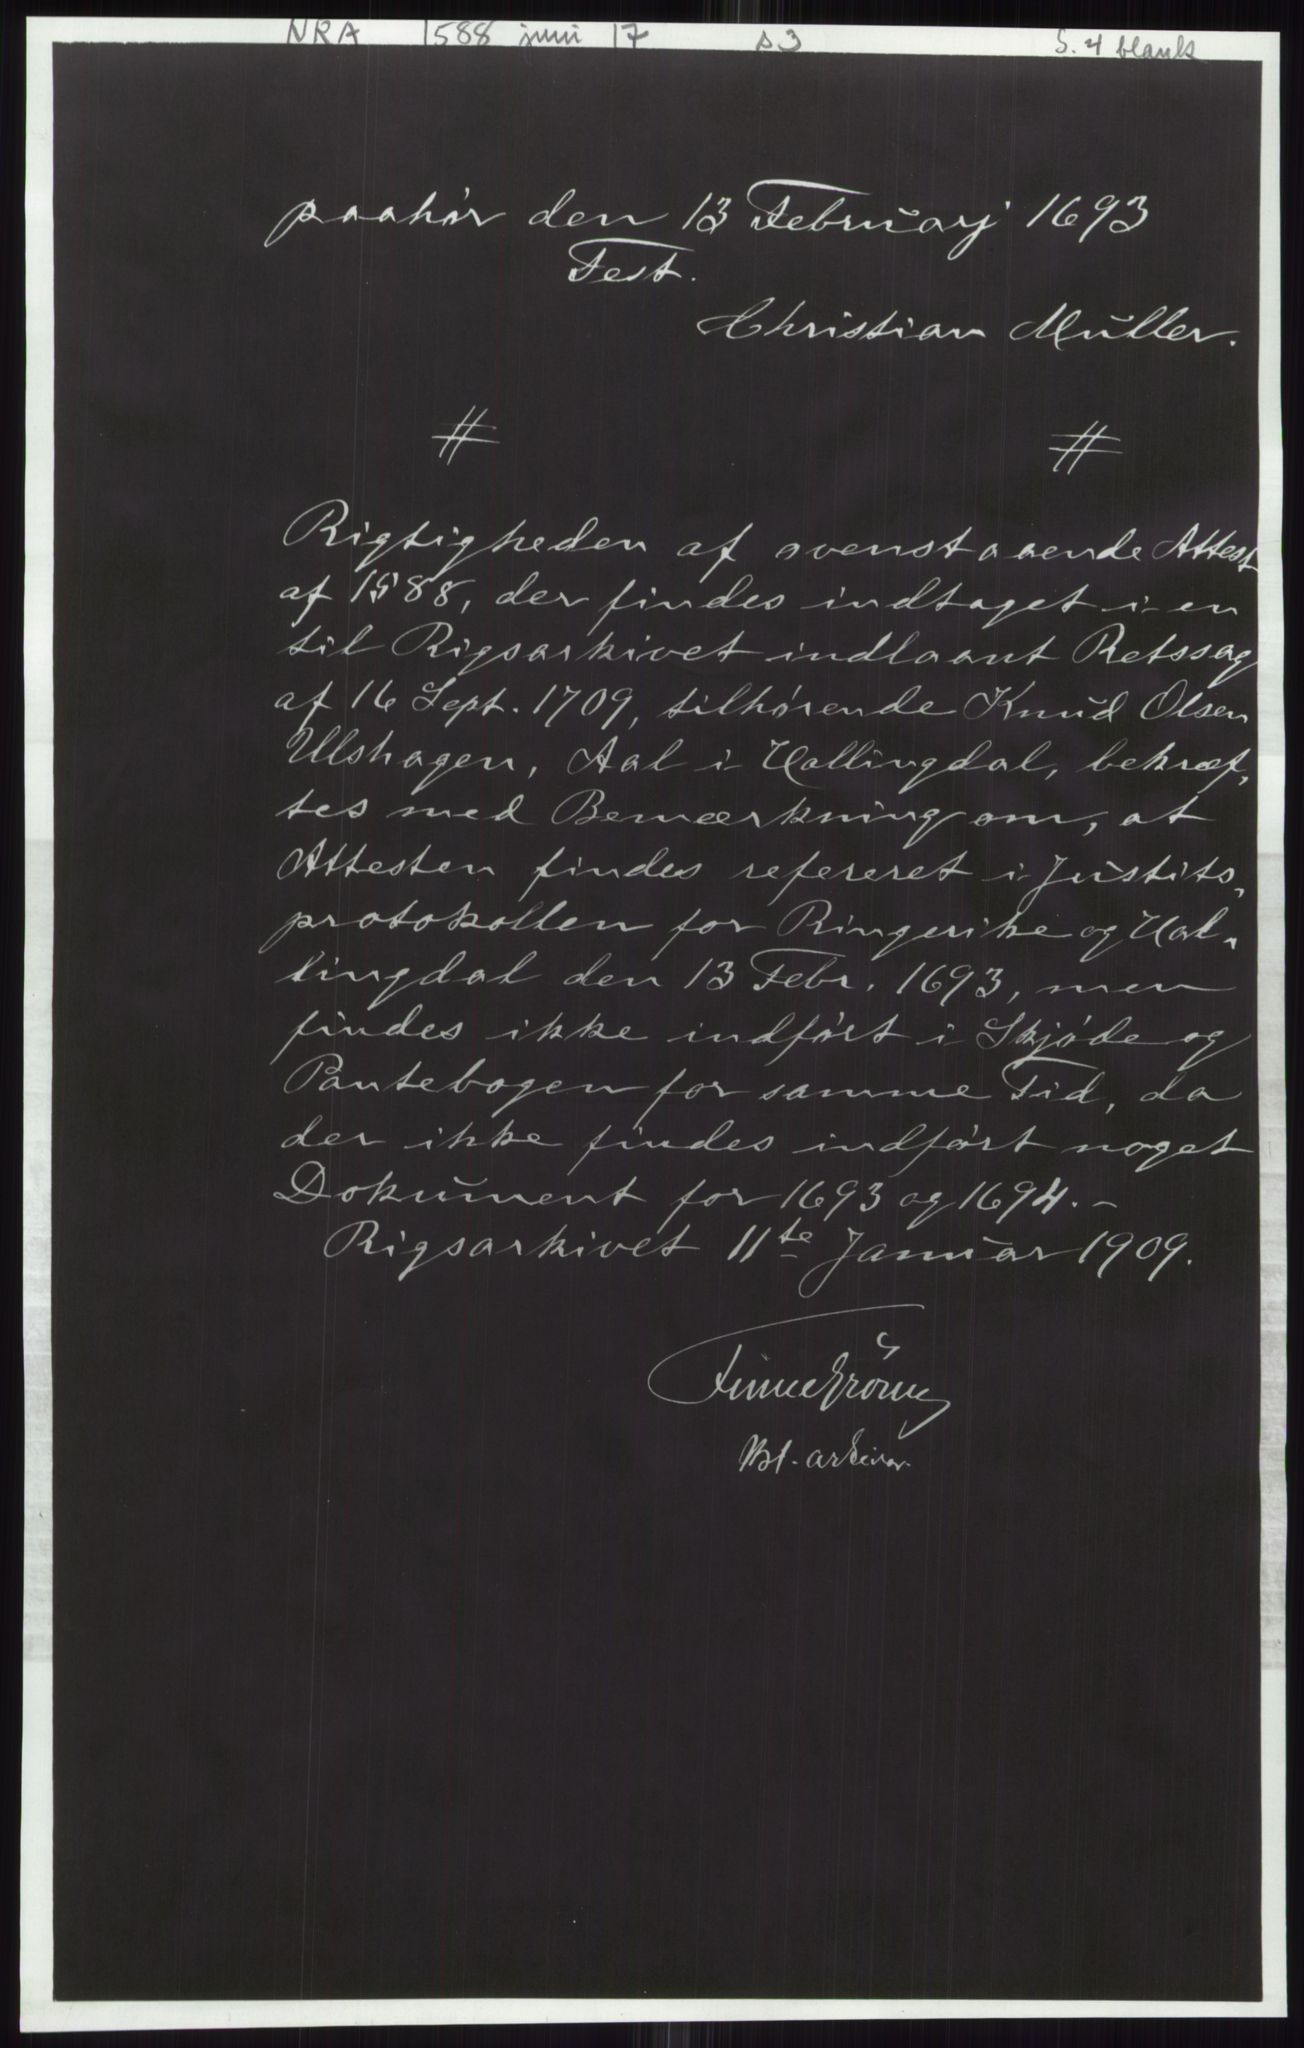 NRA 1588 juni 17 s3 S. 4 blank
paahör den 13 Februarj 1693
Test.
Christian Müller.
# #
Rigtigheden af ovenstaaende Attest
af 1588, der findes indtaget i en
til Rigsarkivet indlaant Retssag
af 16 Sept. 1709, tilhörende Knud Olsen
Ulshagen, Aal i Hallingdal, bekræf-
tes med Bemærkning om, at
Attesten findes refereret i Justits-
protokollen for Ringerike og Hal-
lingdal den 13 Febr. 1693, men
findes ikke indført i Skjöde og
Pantebogen for samme Tid, da
der ikke findes indfört noget
Dokument for 1693 og 1694.-
Rigsarkivet 11te Januar 1909.
arkivar.